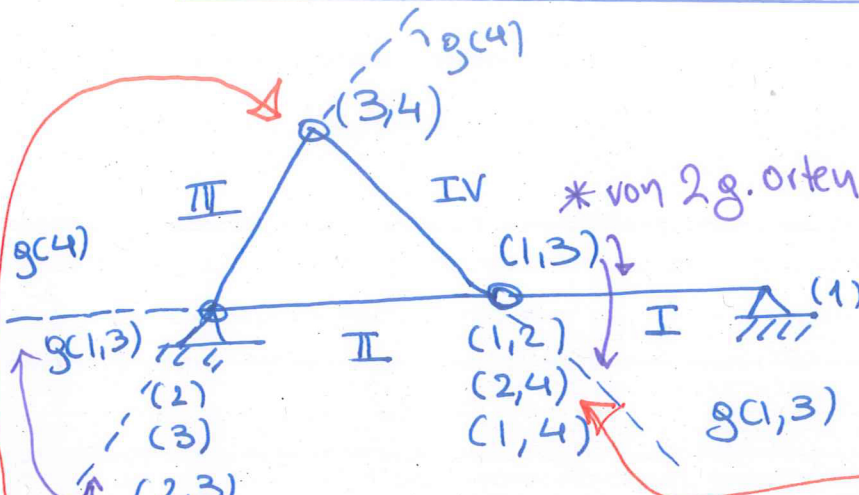 g(4)
(3,4)
III
IV
* von 2 g. orten
g(4)
(1,3)
(1)
g(1,3)
II
(1,2)
I
(2)
(2,4)
(3)
(1,4)
g(1,3)
(2,3)